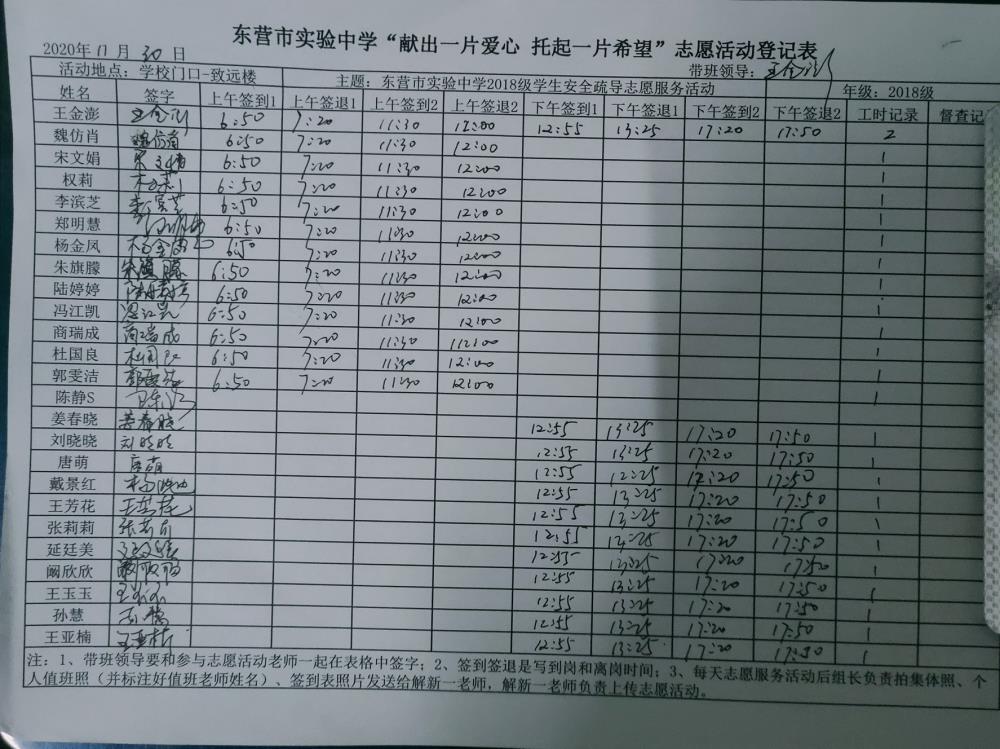 东营市实验中学“献出一片爱心 托起一片希望”志愿活动登记表
2020年11月30日 带班领导：王金澎
活动地点：学校门口-致远楼 主题：东营市实验中学2018级学生安全疏导志愿服务活动 年级：2018级
姓名 签字 上午签到1 上午签退1 上午签到2 上午签退2 下午签到1 下午签退1 下午签到2 下午签退2 工时记录 督查记
王金澎 王金澎 6:50 7:20 11:30 12:00 12:55 13:25 17:20 17:50 2
魏仿肖 魏仿肖 6:50 7:20 11:30 12:00 1
宋文娟 宋文娟 6:50 7:20 11:30 12:00 1
权莉 权莉 6:50 7:20 11:30 12:00 1
李滨芝 李滨芝 6:50 7:20 11:30 12:00 1
郑明慧 6:50 7:20 11:30 12:00 1
杨金凤 杨金凤 6:50 7:20 11:30 12:00 1
朱旗朦 朱旗朦 6:50 7:20 11:30 12:00 1
陆婷婷 陆婷婷 6:50 7:20 11:30 12:00 1
冯江凯 冯江凯 6:50 7:20 11:30 12:00 1
商瑞成 商瑞成 6:50 7:20 11:30 112:00 1
杜国良 杜国良 6:50 7:20 11:30 12:00 1
郭雯洁 郭雯洁 6:50 7:20 11:30 12:00 1
陈静S 1
姜春晓 姜春晓 12:55 13:25 17:20 17:50 1
刘晓晓 刘晓晓 12:55 13:25 17:20 17:50 1
唐萌 唐萌 12:55 12:25 17:20 17:50 1
戴景红 12:55 13:25 17:20 17:50 1
王芳花 王芳花 12:55 13:25 17:20 17:50 1
张莉莉 张莉莉 12:55 13:25 17:20 17:50 1
延廷美 12:55 13:25 17:20 17:50 1
阚欣欣 阚欣欣 12:55 13:25 17:20 17:50 1
王玉玉 王玉玉 12:55 13:25 17:20 17:50 1
孙慧 孙慧 12:55 13:25 17:20 17:50 1
王亚楠 王亚楠 12:55 13:25 17:20 17:50 1
注：1、带班领导要和参与志愿活动老师一起在表格中签字；2、签到签退是写到岗和离岗时间；3、每天志愿服务活动后组长负责拍集体照、个
人值班照（并标注好值班老师姓名）、签到表照片发送给解新一老师，解新一老师负责上传志愿活动。